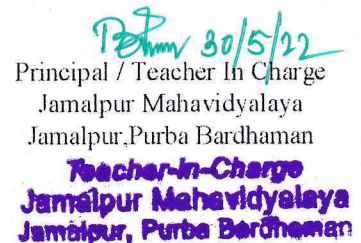 30/5/22
Principal / Teacher In Charge
Jamalpur Mahavidyalaya
Jamalpur,Purba Bardhaman
Teacher-in-Charge
Jamalpur Mahavidyalaya
Jamalpur, Purba Bardhaman